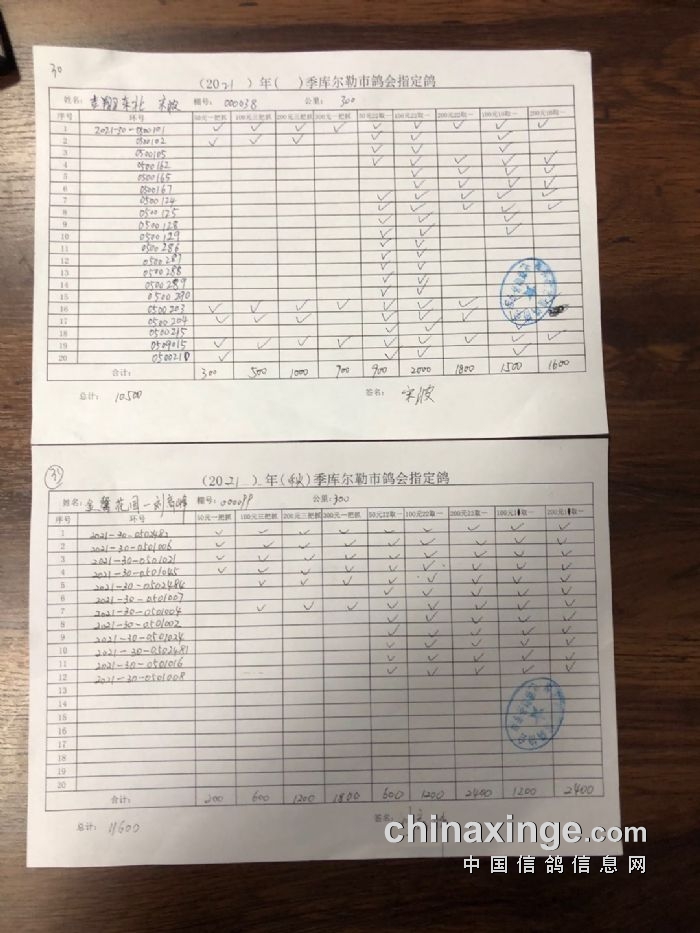 30
(2021 ) 年( )季库尔勒市鸽会指定鸽
姓名: 东北 宋波 棚号: 000038 公里: 300
序号 环号 50元一把抓 100元三把抓 200元三把抓 300元一把抓 50元22取一 100元22取一 200元22取一 100元10取一 200元10取一
1 2021-30-0500101 ✓ ✓ ✓ ✓ ✓ ✓ ✓ ✓ ✓
2 0500102 ✓ ✓ ✓
3 0500105
4 0500162
5 0500165
6 0500167
7 0500124
8 0500125
9 0500128
10 0500129
11 0500286
12 0500287
13 0500288
14 0500289
15 0500290
16 0500203
17 0500204
18 0500215
19 0509015
20 0500210
合计: 300 500 1000 900 2000 1800 1500 1600
总计: 10500 签名: 宋波
31
(2021 ) 年(秋)季库尔勒市鸽会指定鸽
姓名: 金馨花园一刘 棚号: 000099 公里:300
序号 环号 50元一把抓 100元三把抓 200元三把抓 300元一把抓 50元22取一 100元22取一 200元22取一 100元10取一 200元10取一
1 2021-30-0502482
2 2021-30-0501006
3 2021-30-0501021
4 2021-30-0501045
5 2021-30-0502484
6 2021-30-0501007
7 2021-30-0501004
8 2021-30-0501002
9 2021-30-0501024
10 2021-30-0502481
11 2021-30-0501016
12 2021-30-0501008
13
14
15
16
17
18
19
20
合计: 200 600 1200 1800 600 1200 2400 1200 2400
总计: 11600 签名:
chinaxinge.com
中国信鸽信息网